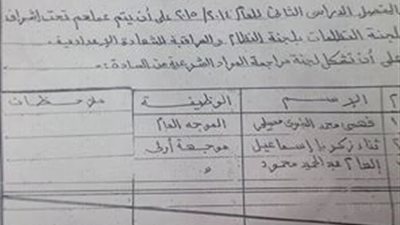 الفصل الدراسى الثانى للعام ٢٠١٤/ ٢٠١٥ على أن يتم عملهم تحت إشراف
لجنة التظلمات بلجنة النظام والمراقبة للشهادة الإعدادية.
على أن تشكل لجنة مراجعة المواد الشرعية من السادة :-
م الاسم الوظيفة ملاحظات
١ فهمى محمد الموجه العام
٢ ثناء زكريا إسماعيل موجهة أولى
إلهام عبد الحميد محمود "